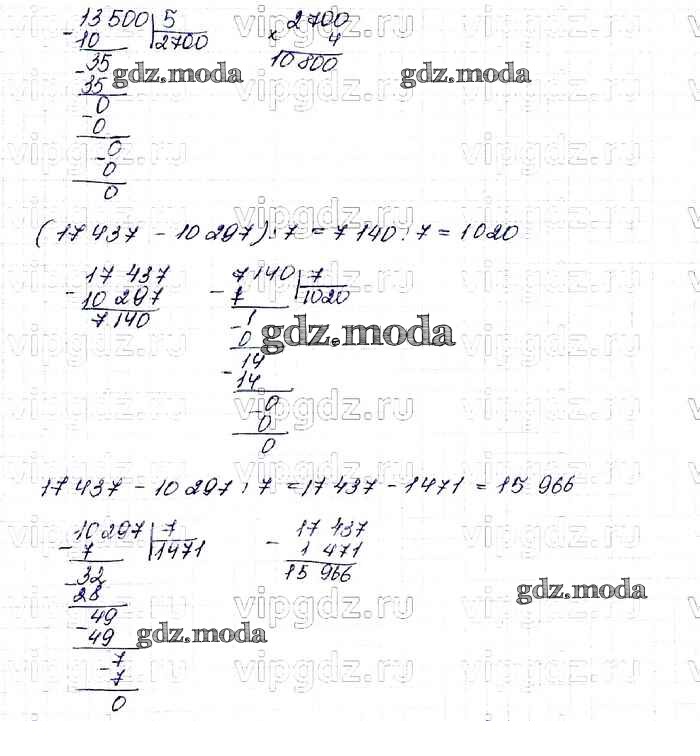 13 500 | 5      × 2700
- 10 | 2700      4
35      10 800
- 35
0
- 0
0
- 0
0
(17 437 - 10 297) : 7 = 7 140 : 7 = 1020
- 17 437      - 7140 | 7
10 297      7 | 1020
7 140      - 1
0
14
- 14
- 0
0
0
17 437 - 10 297 : 7 = 17 437 - 1471 = 15 966
- 10 297 | 7      - 17 437
7 | 1471      1 471
- 32      15 966
28
49
- 49
- 7
7
0
gdz.moda
gdz.moda
gdz.moda
gdz.moda
vipgdz.ru